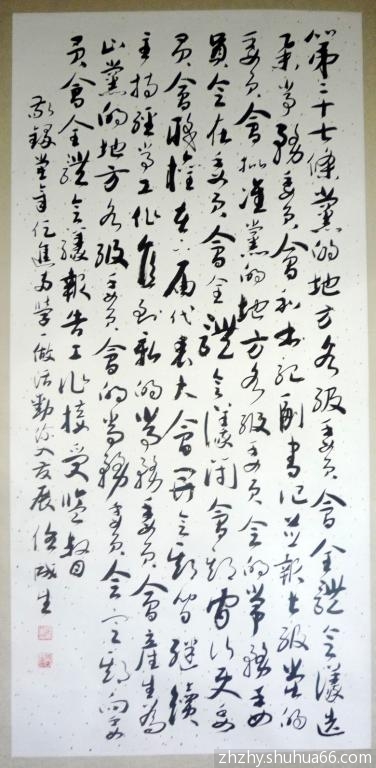 第二十七條黨的地方各級委員會全體会議选
舉常務委員會和書記副書记並報上級黨的
委員會批准黨的地方各級委員会的常務委
員会在委員會全體会議闭會期間行使委
員會職權在下屆代表大會開会期間繼續
主持經常工作直到新的常務委員會產生為
止黨的地方各級委員會的常務委員会定期向委
員會全體会議報告工作接受監督
敬錄党章促進两学一做活動深入发展 成生
zhzhy.shuhua66.com